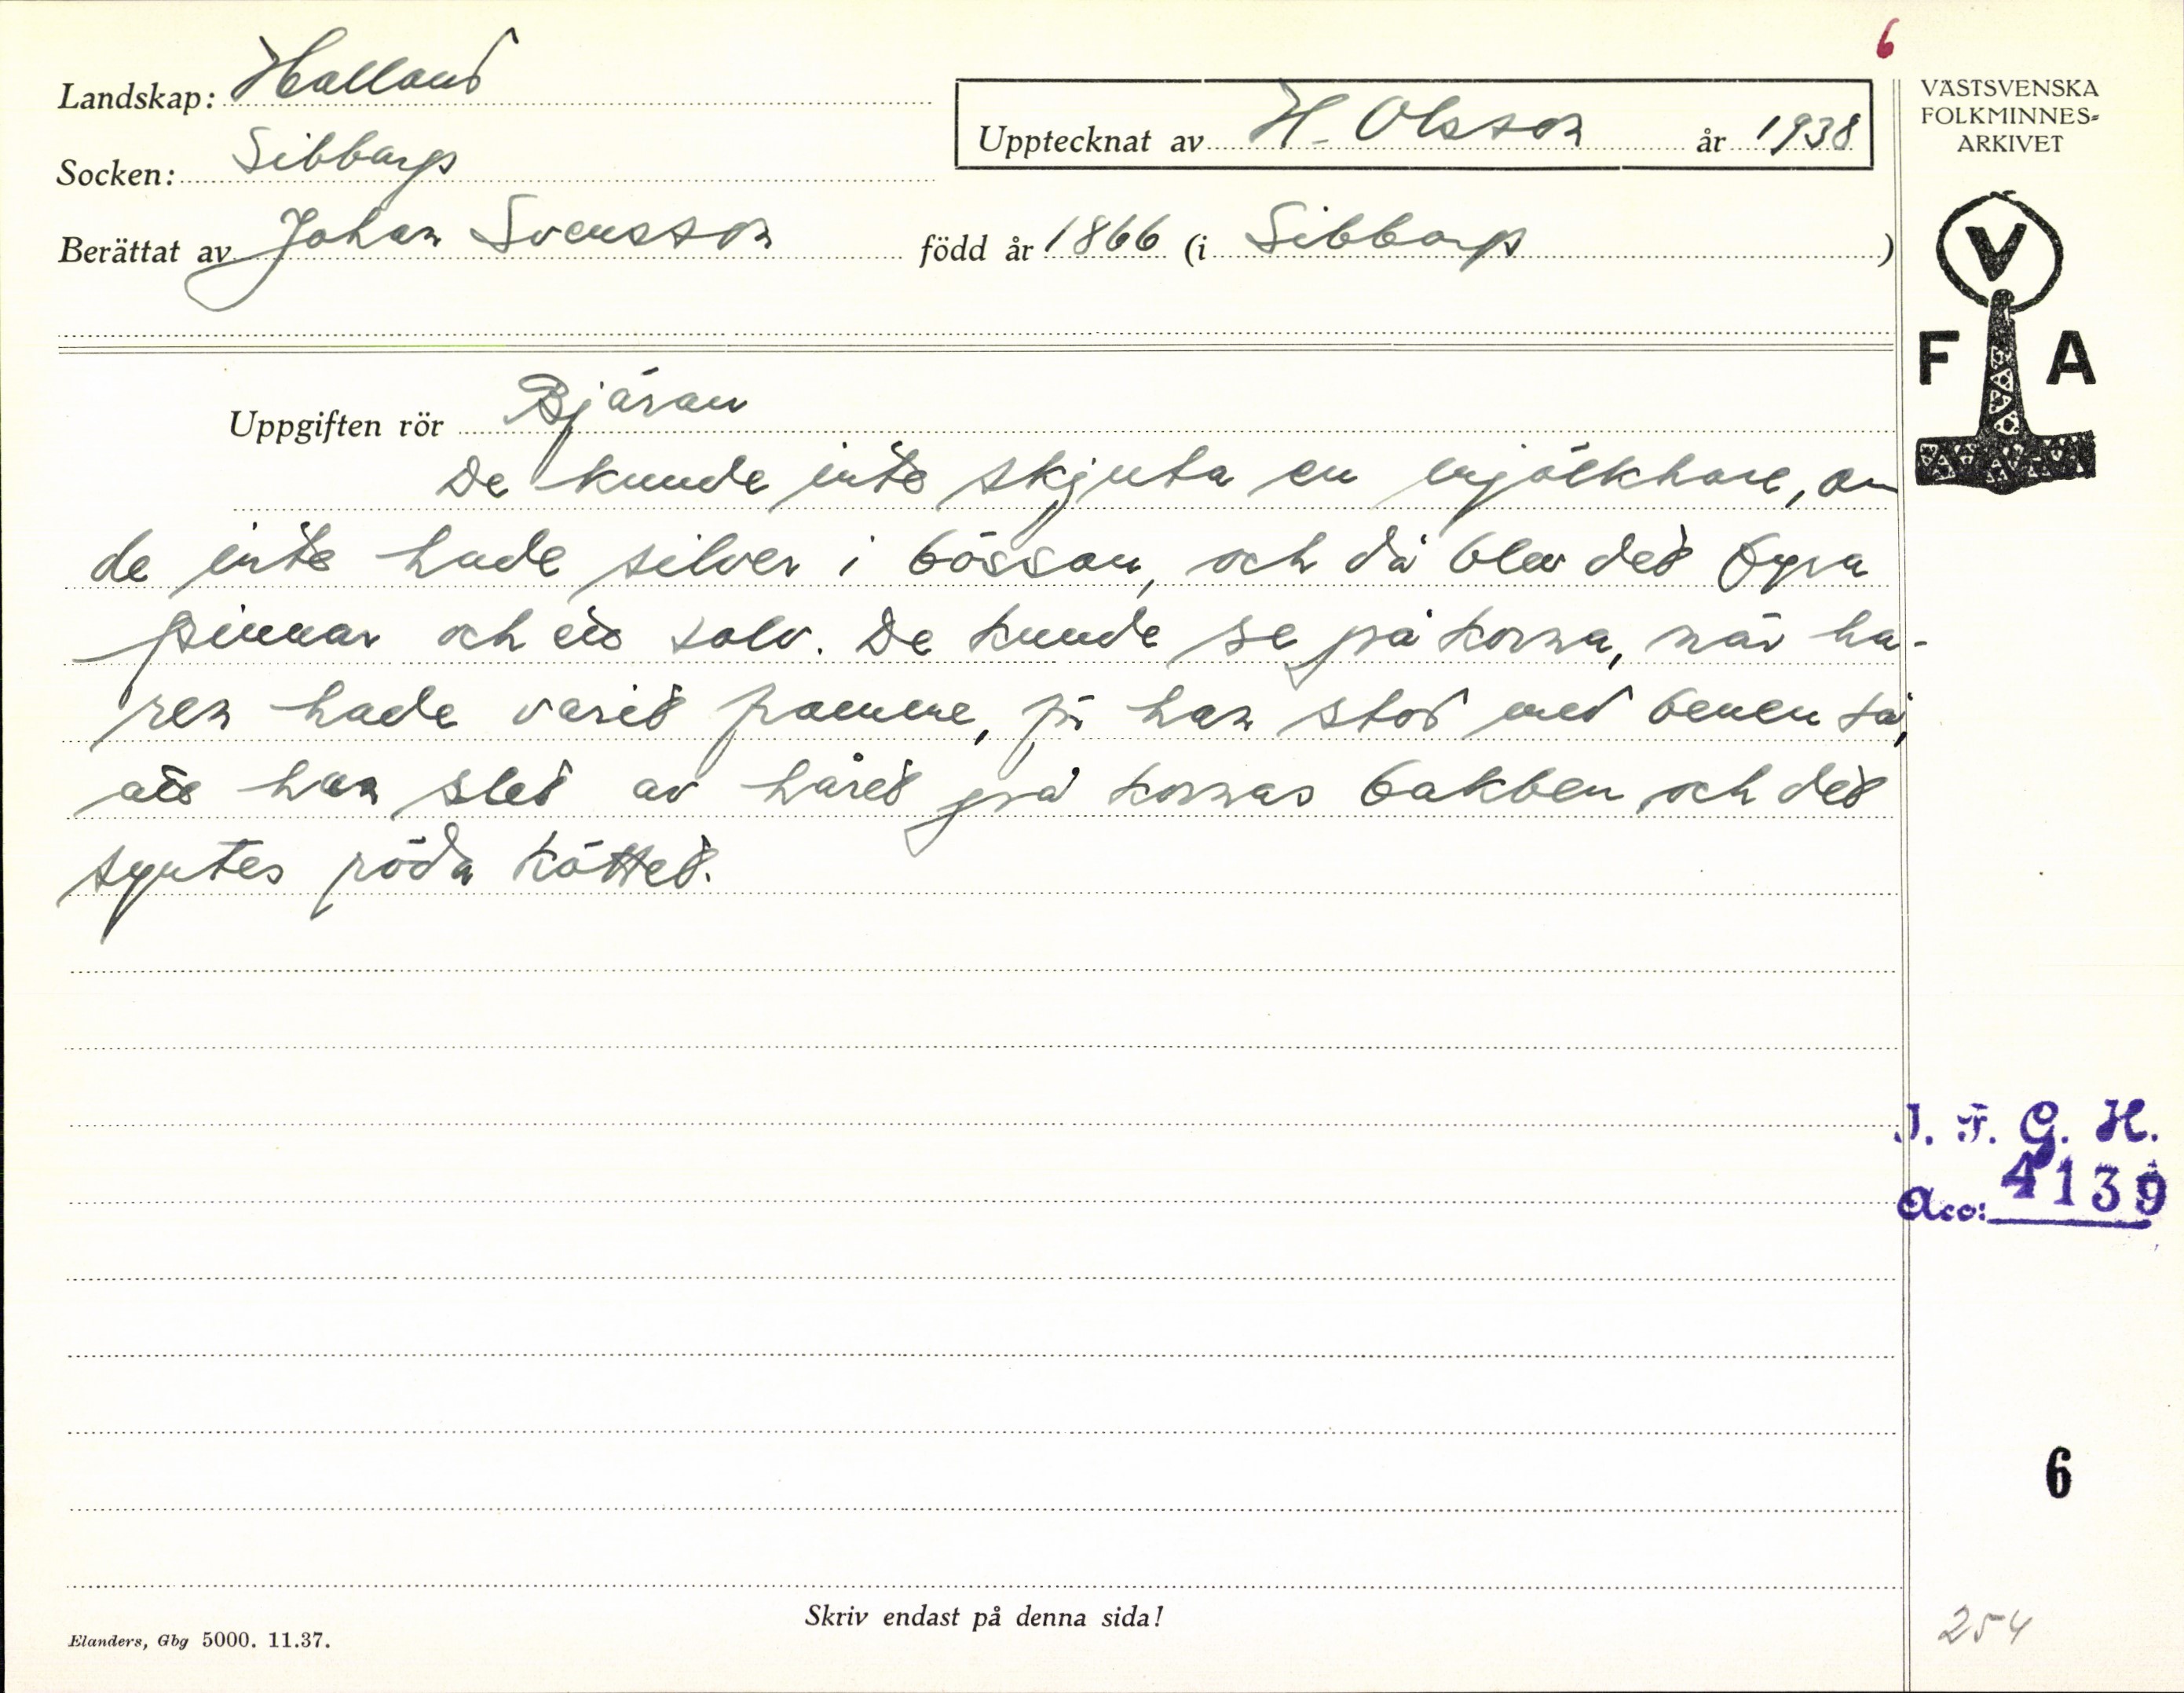 6
Landskap: Halland
Upptecknat av H. Olsson år 1938
VÄSTSVENSKA
FOLKMINNES=
ARKIVET
Socken: Sibbarp
Berättat av Johan Svensson född år 1866 (i Sibbarp)
V
F A
Uppgiften rör Bjäran
De kunde inte skjuta en mjölkhare, om
de inte hade silver i bössan, och då blev det fyra
pinnar och ett solv. De kunde se på korna, när ha-
ren hade varit framme, för han stod med benen så,
att han slet av håret på kornas bakben, och det
syntes röda köttet.
I. F. G. H.
Acc: 4139
6
Skriv endast på denna sida!
Elanders, Gbg 5000. 11.37.
254